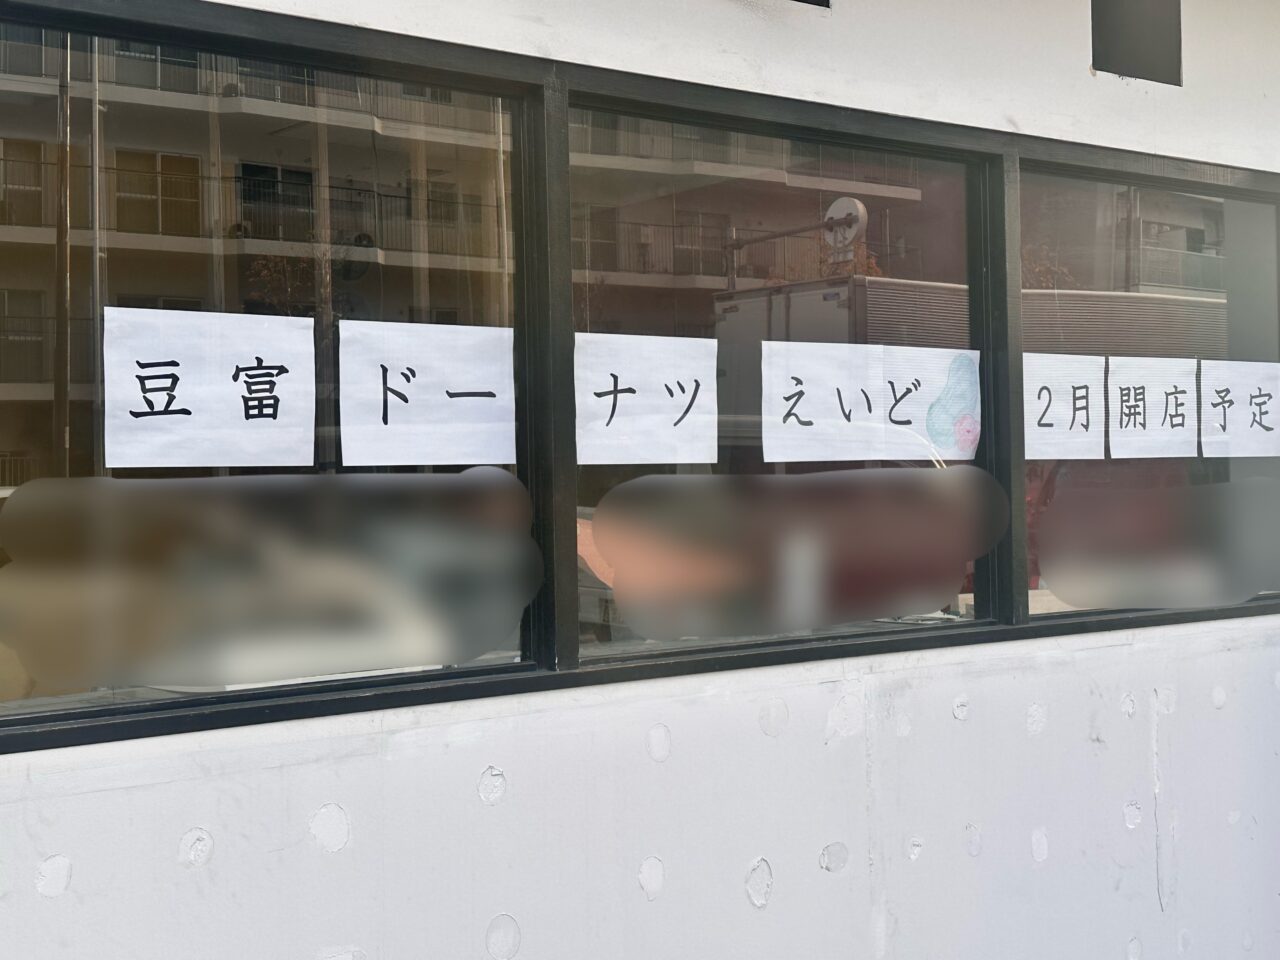 豆富ドーナツ えいど 2月開店予定